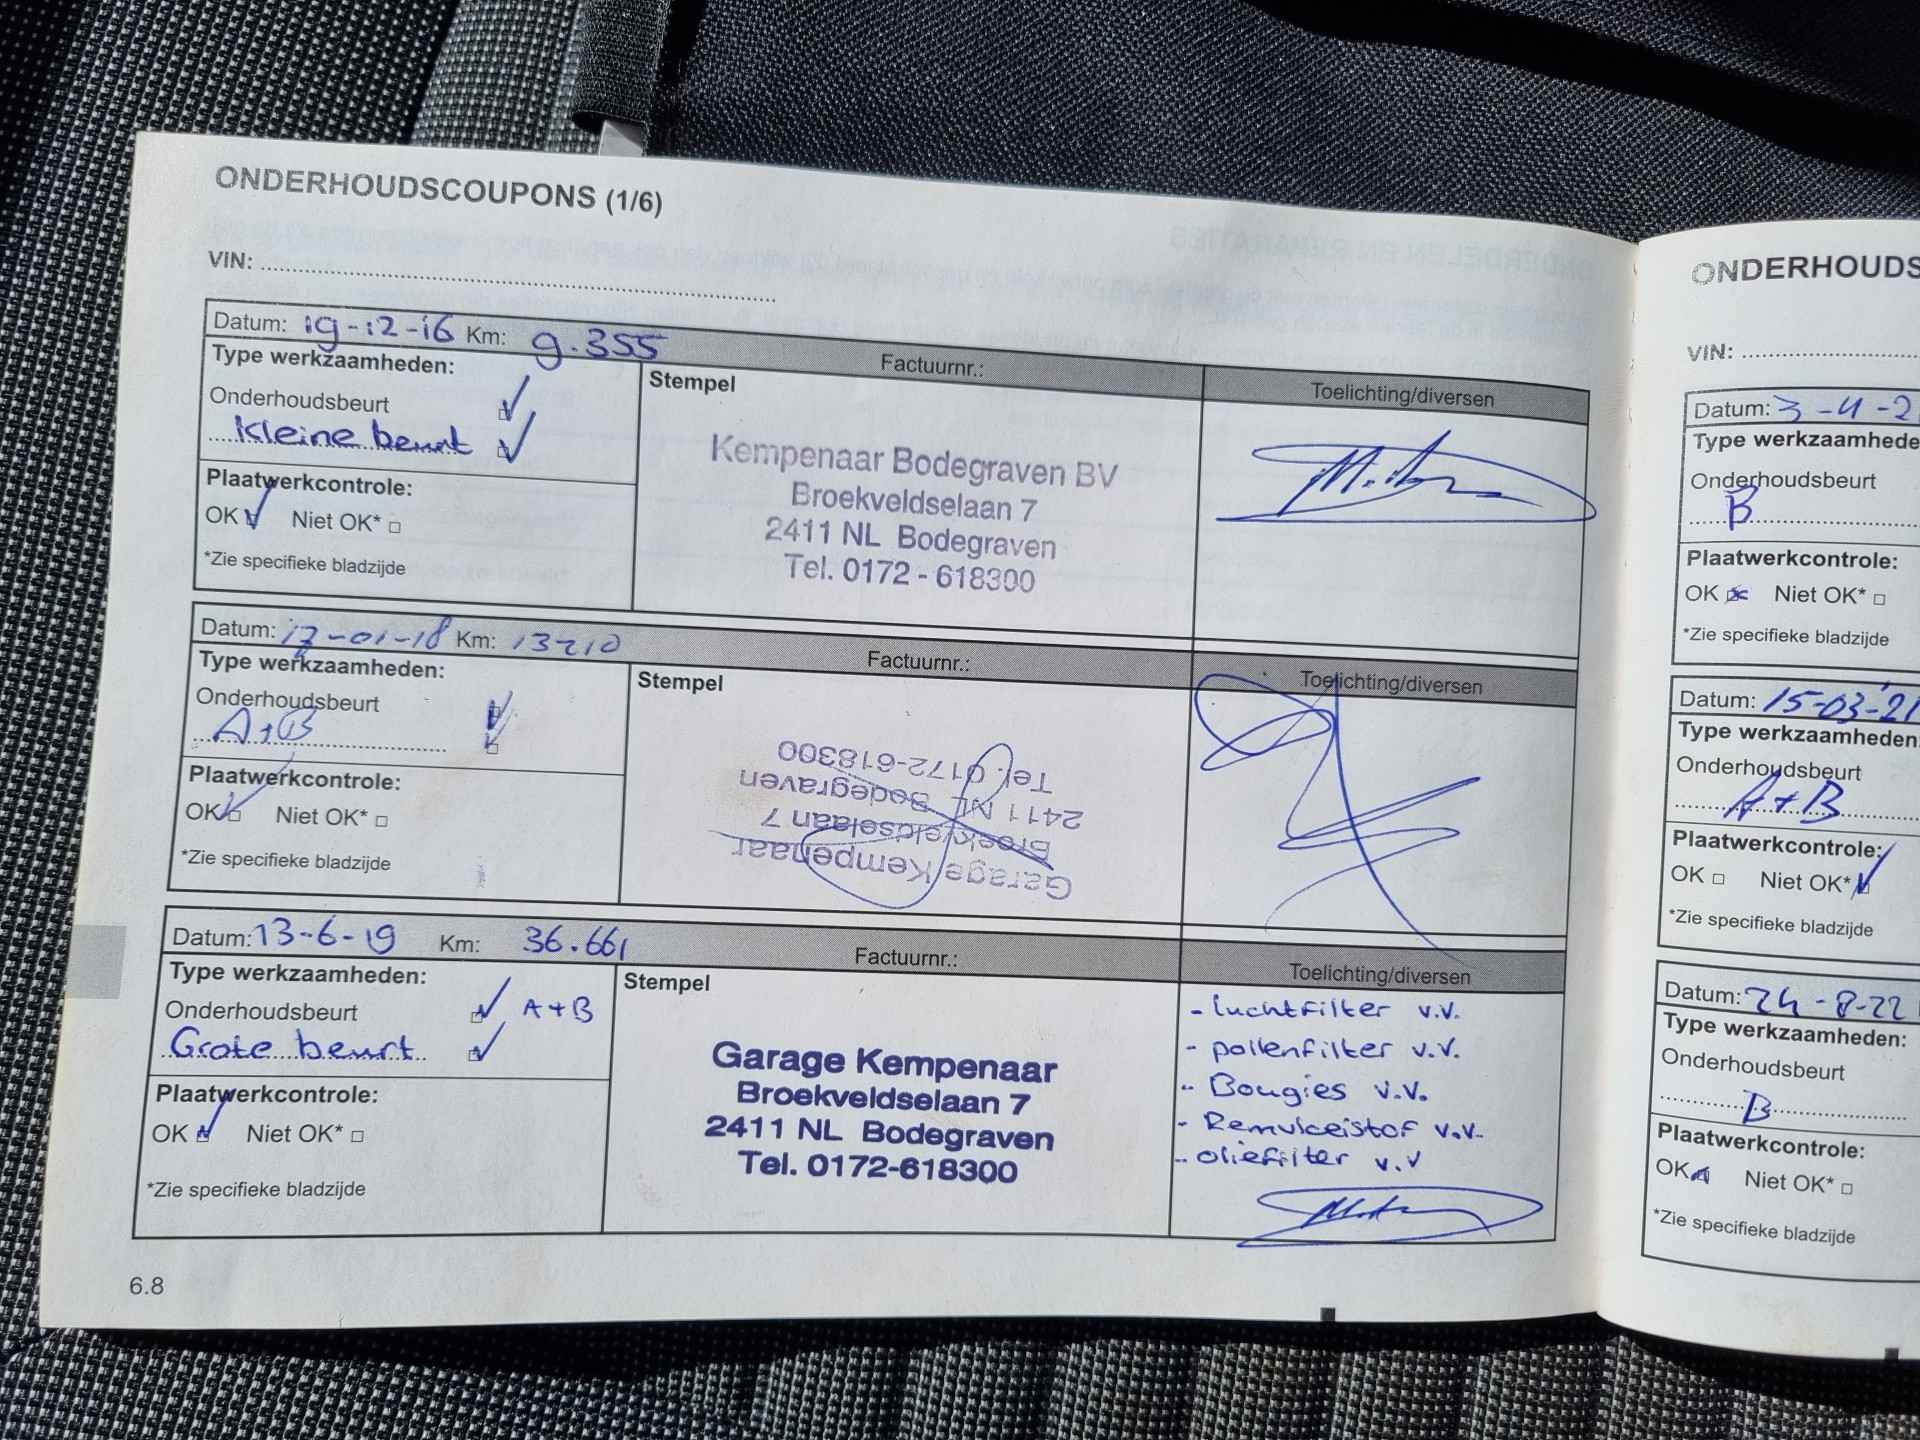 ONDERHOUDSCOUPONS (1/6)
VIN:
Datum: 19-12-16 Km: 9.355 Factuurnr.:
Type werkzaamheden:
Stempel
Toelichting/diversen
Onderhoudsbeurt
Kleine beurt
Plaatwerkcontrole:
OK Niet OK*
*Zie specifieke bladzijde
Kempenaar Bodegraven BV
Broekveldselaan 7
2411 NL Bodegraven
Tel. 0172 - 618300
Datum: 17-01-18 Km: 13210 Factuurnr.:
Type werkzaamheden:
Stempel
Toelichting/diversen
Onderhoudsbeurt
A+B
Plaatwerkcontrole:
OK Niet OK*
*Zie specifieke bladzijde
Garage Kempenaar
Broekveldselaan 7
2411 NL Bodegraven
Tel. 0172-618300
Datum: 13-6-19 Km: 36.661 Factuurnr.:
Type werkzaamheden:
Stempel
Toelichting/diversen
Onderhoudsbeurt A+B
Grote beurt
Plaatwerkcontrole:
OK Niet OK*
*Zie specifieke bladzijde
Garage Kempenaar
Broekveldselaan 7
2411 NL Bodegraven
Tel. 0172-618300
- luchtfilter v.v.
- pollenfilter v.v.
- Bougies v.v.
- Remvloeistof v.v.
- oliefilter v.v
6.8
ONDERHOUDS
VIN:
Datum: 3-4-2
Type werkzaamhede
Onderhoudsbeurt
B
Plaatwerkcontrole:
OK Niet OK*
*Zie specifieke bladzijde
Datum: 15-03-'21
Type werkzaamheden:
Onderhoudsbeurt
A+B
Plaatwerkcontrole:
OK Niet OK*
*Zie specifieke bladzijde
Datum: 24-8-22
Type werkzaamheden:
Onderhoudsbeurt
B
Plaatwerkcontrole:
OK Niet OK*
*Zie specifieke bladzijde